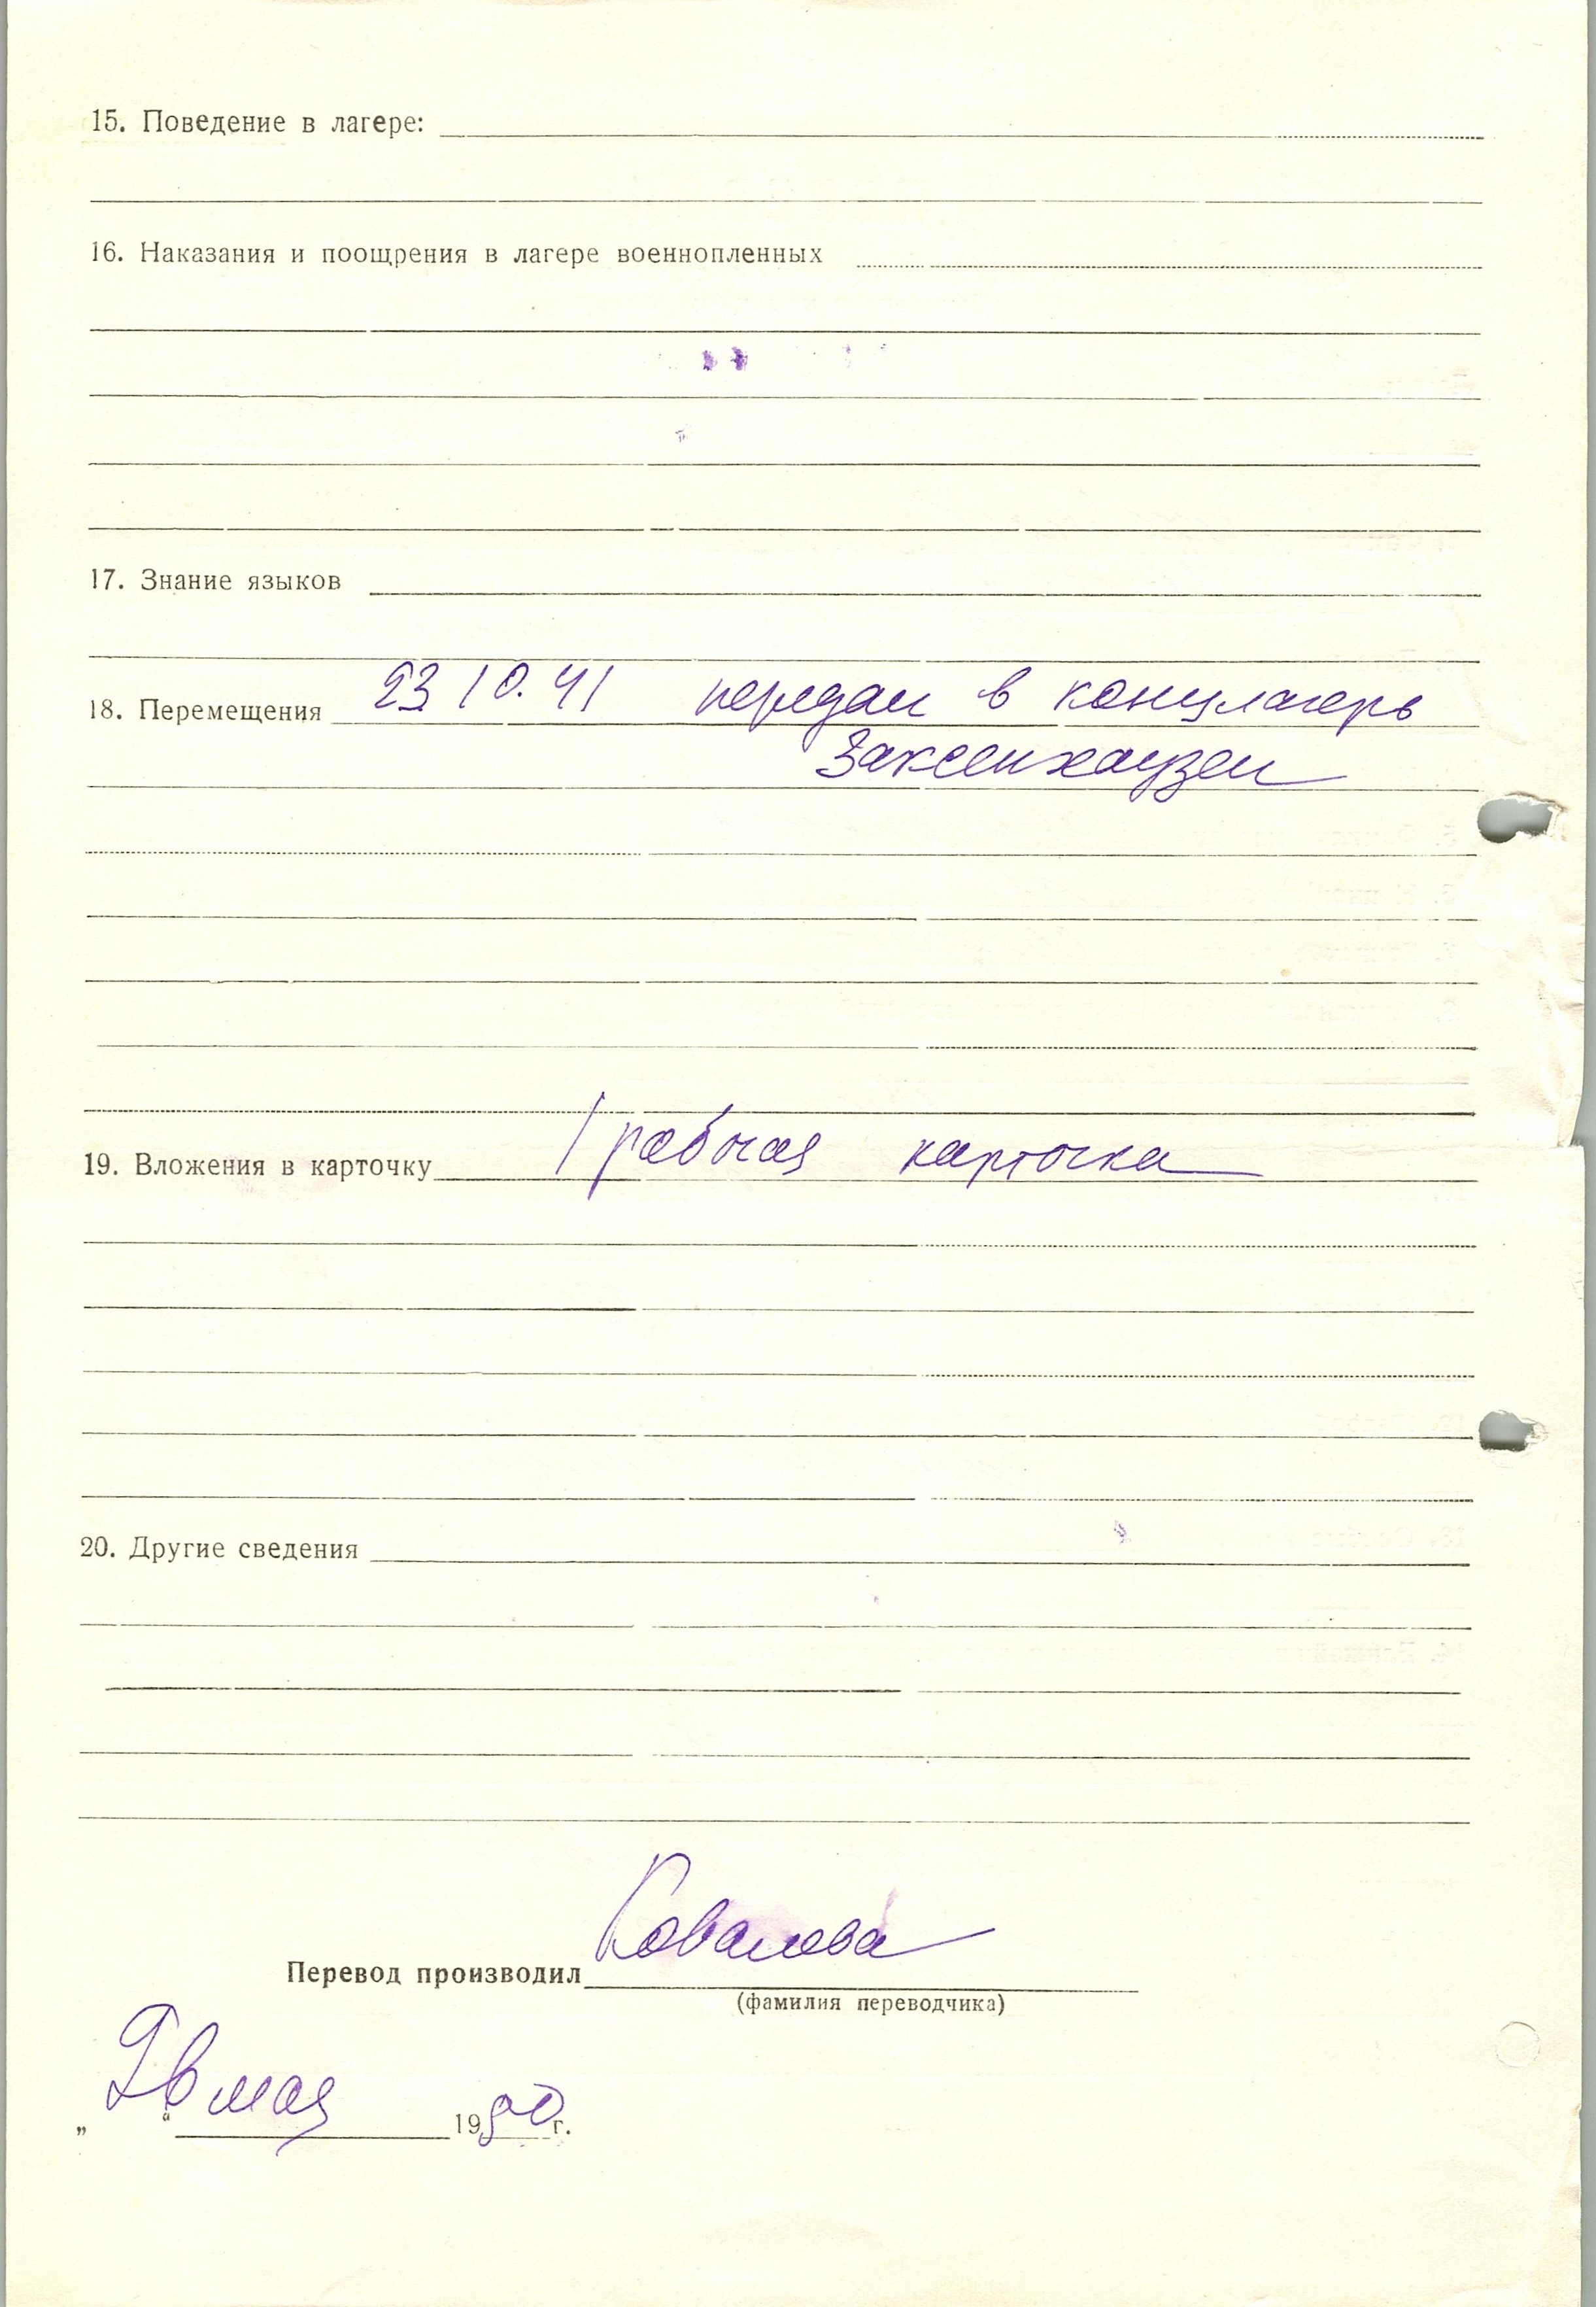 15. Поведение в лагере:
16. Наказания и поощрения в лагере военнопленных
17. Знание языков
18. Перемещения 23 10. 41 передан в концлагерь
Заксенхаузен
19. Вложения в карточку 1 рабочая карточка
20. Другие сведения
Перевод производил Ковалева
(фамилия переводчика)
„ “ мая 19 г.